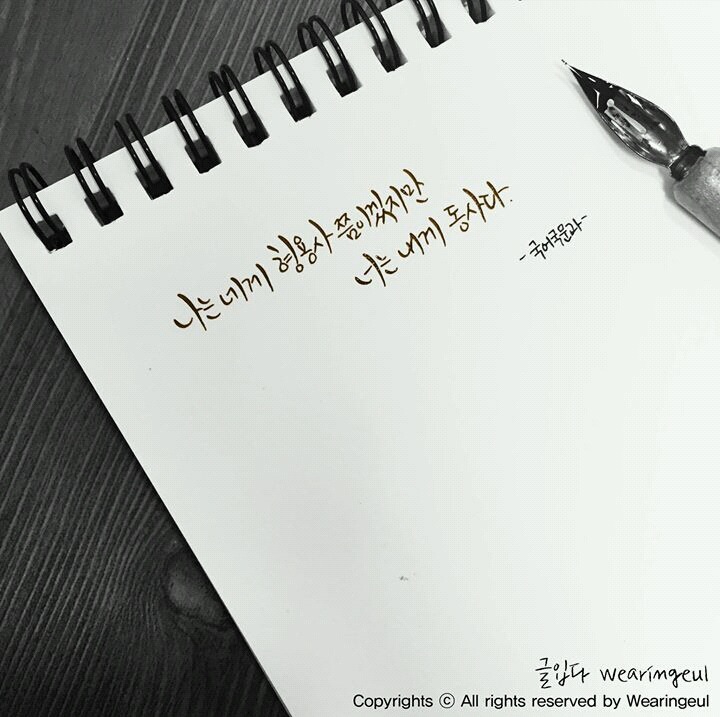 나는 네게 형용사 쯤이겠지만
너는 내게 동사다.
- 국어국문과 -
글입다 wearingeul
Copyrights ⓒ All rights reserved by Wearingeul